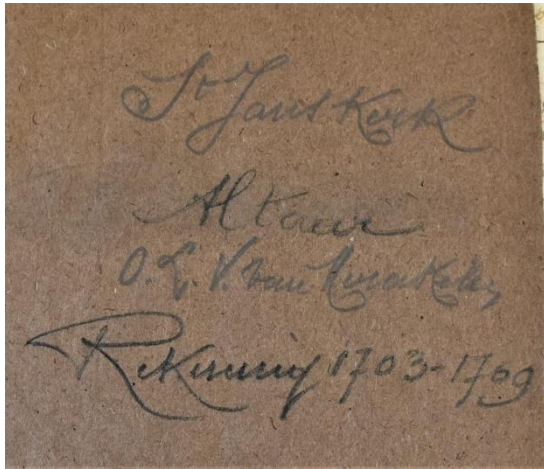 St Jans Kerk
Alkaar
O. L. V. van Mirakelen
Rekening 1703-1709